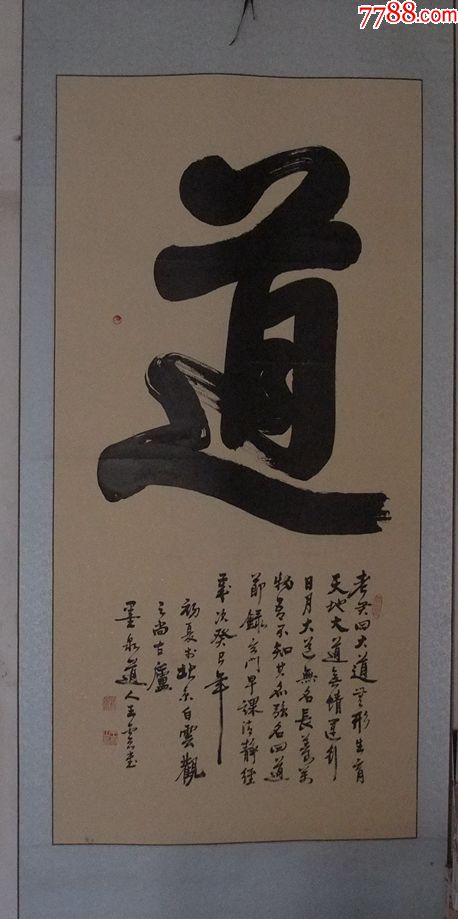 7788.com
道
老君曰大道無形生育
天地大道無情運行
日月大道無名長養萬
物吾不知其名強名曰道
節錄玄門早課清靜經
歲次癸巳年
初夏书於北京白雲觀
之尚古廬
墨泉道人王